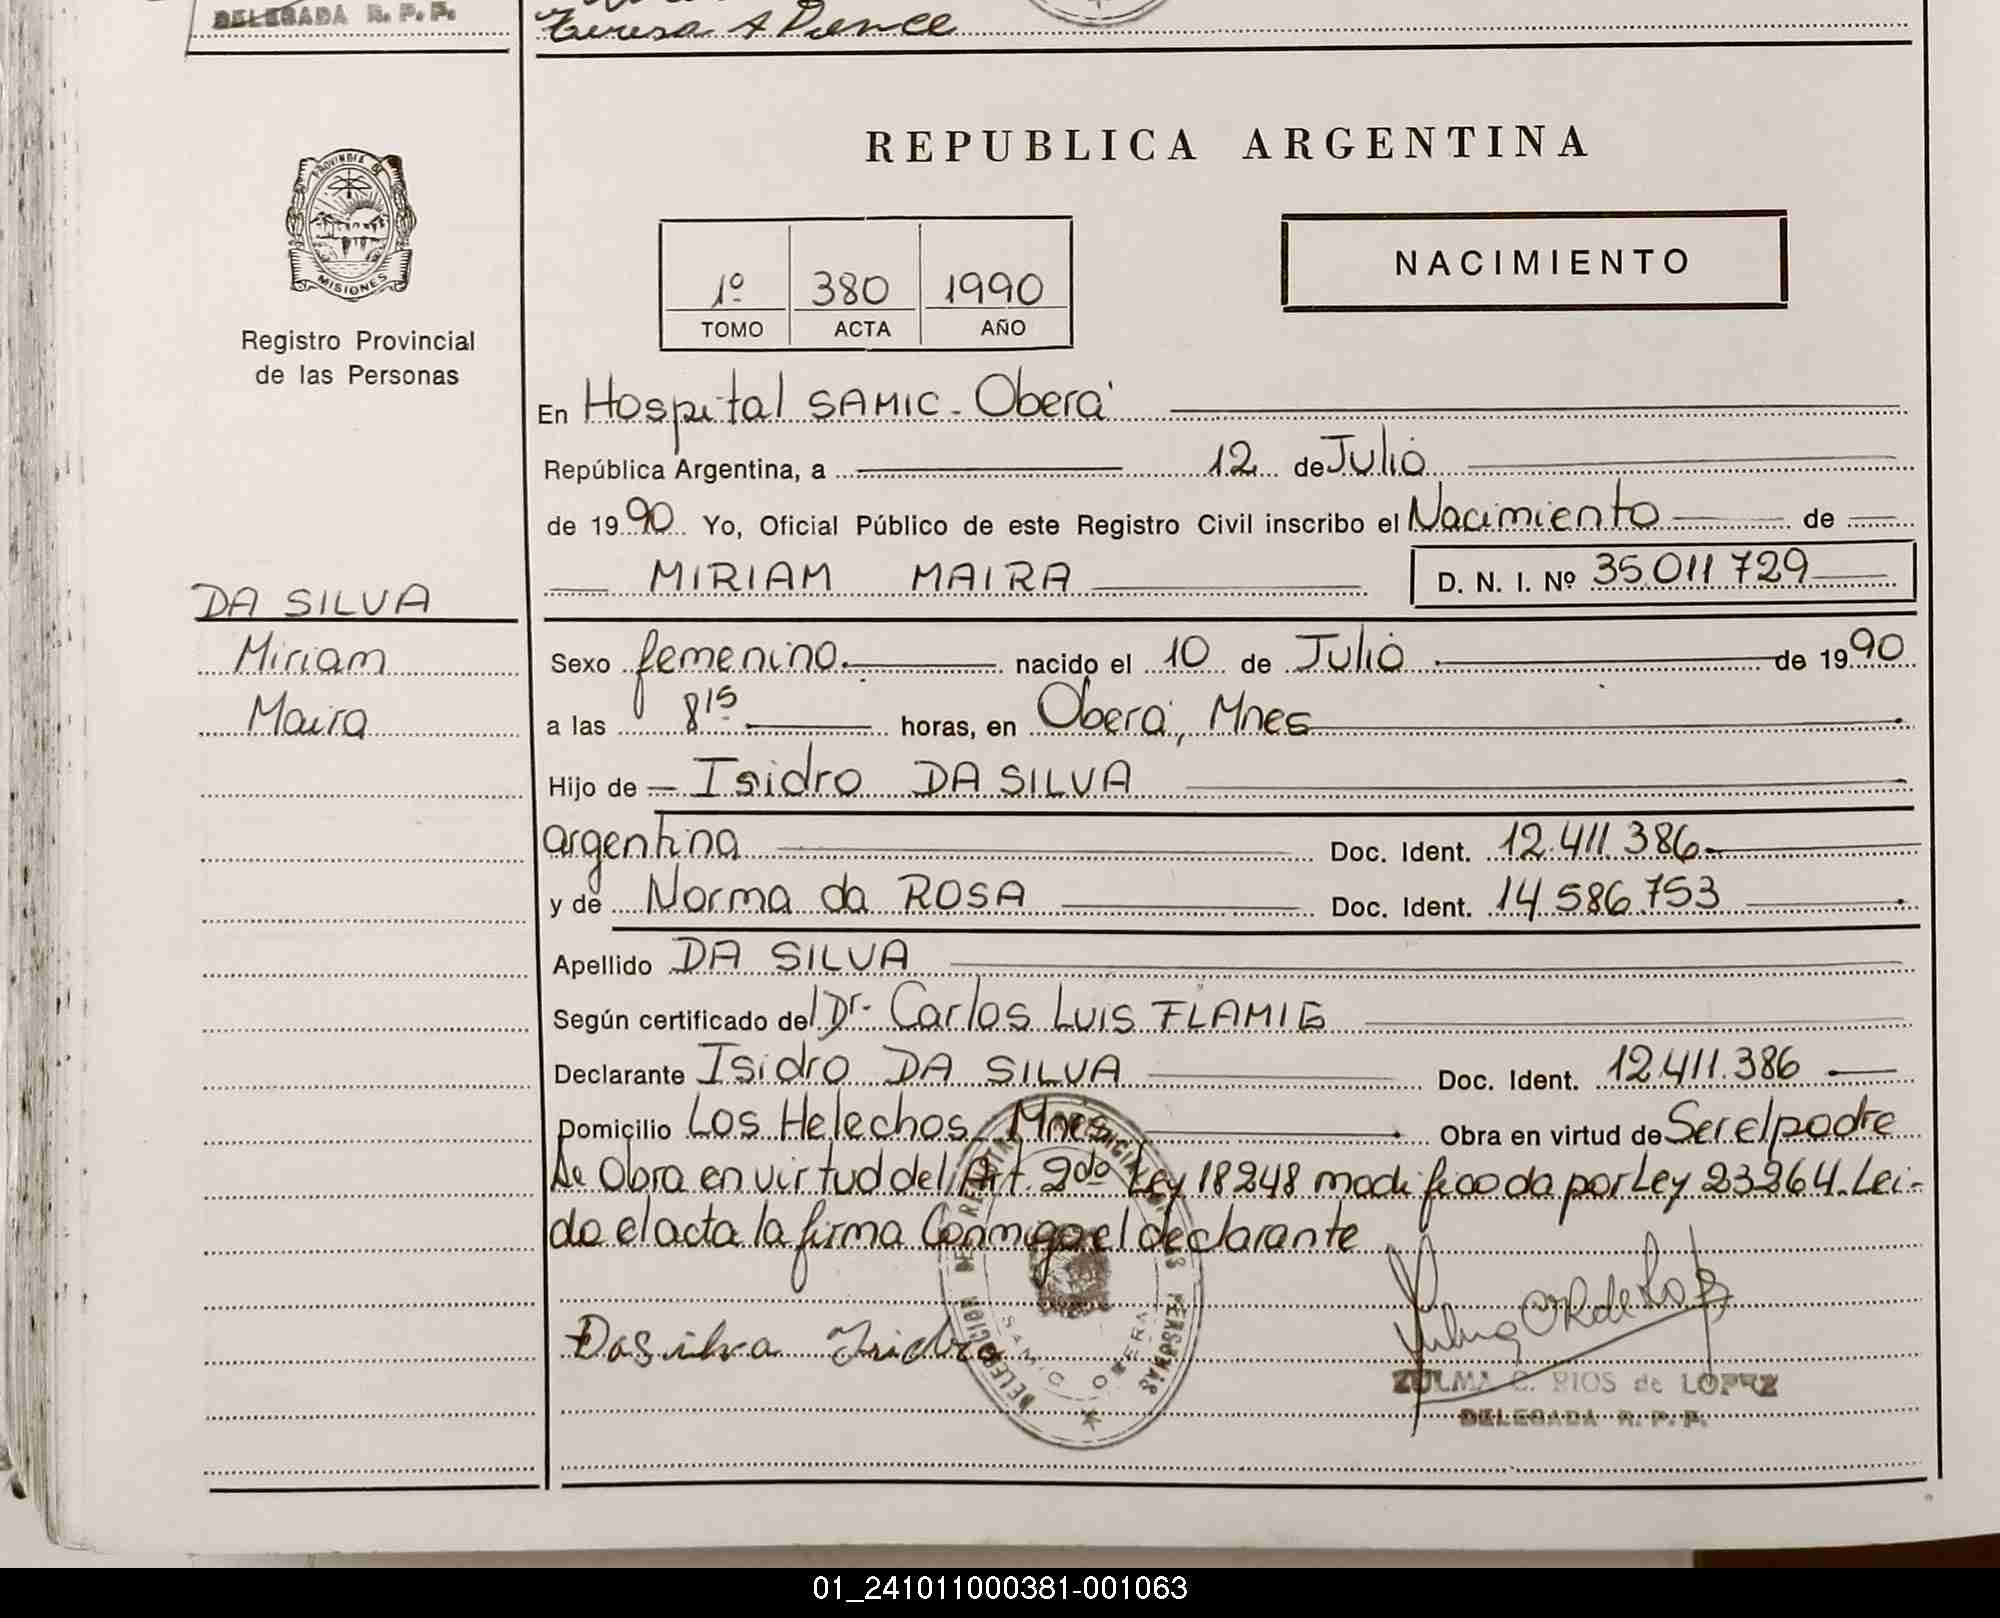 DELEGADA R. P. P.
Teresa A Ponce
PROVINCIA DE
MISIONES
Registro Provincial
de las Personas
DA SILVA
Miriam
Maira
REPUBLICA ARGENTINA
1º 380 1990
TOMO ACTA AÑO
NACIMIENTO
En Hospital SAMIC - Oberá
República Argentina, a 12 de Julio
de 1990 Yo, Oficial Público de este Registro Civil inscribo el Nacimiento de
MIRIAM MAIRA D. N. I. Nº 35.011.729
Sexo femenino nacido el 10 de Julio de 1990
a las 8 15 horas, en Oberá, Mnes
Hijo de Isidro DA SILVA
argentina Doc. Ident. 12.411.386
y de Norma da ROSA Doc. Ident. 14.586.753
Apellido DA SILVA
Según certificado del Dr. Carlos Luis FLAMIG
Declarante Isidro DA SILVA Doc. Ident. 12.411.386
Domicilio Los Helechos, Mnes Obra en virtud de Ser el padre
Se Obra en virtud del Art. 2do Ley 18248 modificada por Ley 23264. Lei-
da el acta la firma Conmigo el declarante
Da silva Isidro
SAMIC OBERA
ZULMA C. RIOS de LOPEZ
DELEGADA R. P. P.
01_241011000381-001063